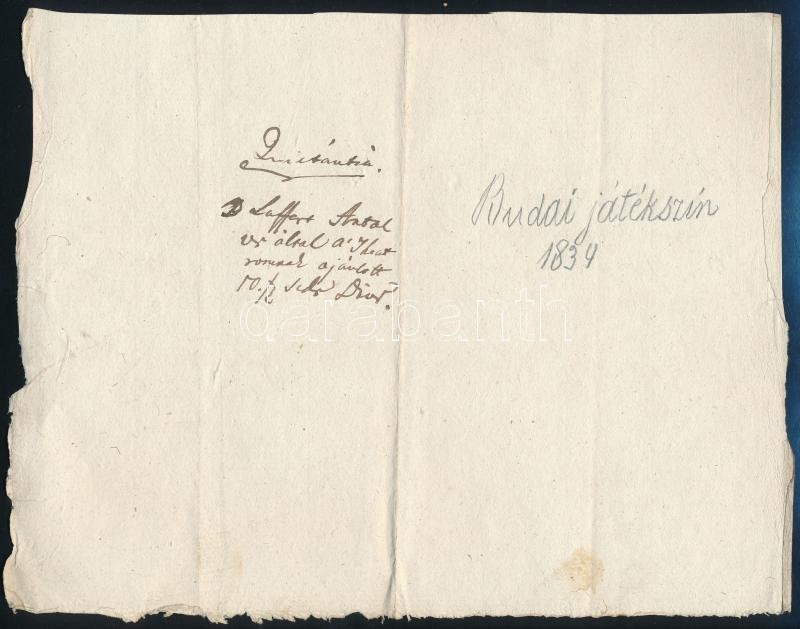 Quietántia.
Laffert Antal
ur által a' Theat
romnak ajánlott
10. 1/2
Budai játékszín
1834
darabanth